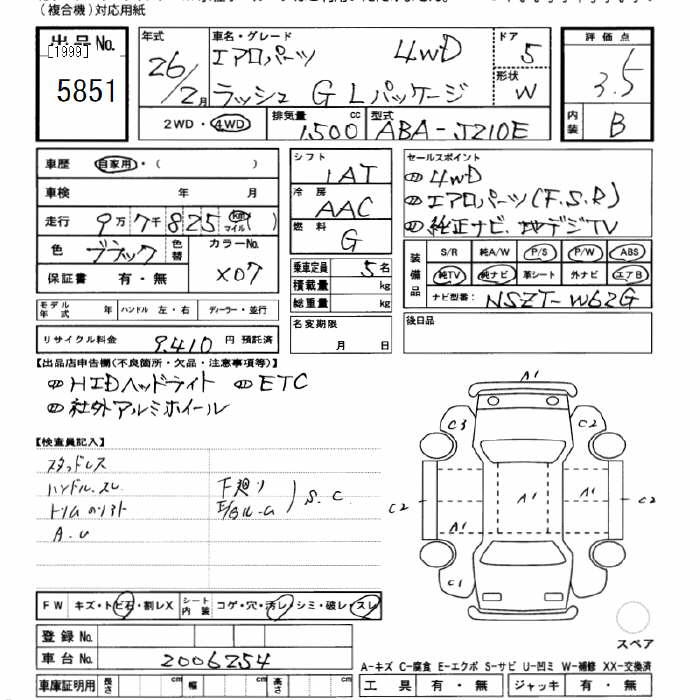 (複合機)対応用紙
出品No.
[1999]
5851
年式
26/2月
車名・グレード
エアロパーツ 4WD
ラッシュ G Lパッケージ
ドア
5
形状
W
評価点
3.5
内装
B
2WD・4WD
排気量
1,500 cc
型式
ABA-J210E
車歴
自家用・( )
車検 年 月
走行 9万7千825 km マイル( )
色 ブラック 色替
カラーNo.
X07
保証書 有・無
モデル年式 年 ハンドル 左・右 ディーラー・並行
リサイクル料金 9,410 円 預託済
シフト
1AT
冷房
AAC
燃料
G
乗車定員 5名
積載量 kg
総重量 kg
名変期限
月 日
セールスポイント
4WD
エアロパーツ(F.S.R)
純正ナビ.地デジTV
装備品
S/R 純A/W P/S P/W ABS
純TV 純ナビ 革シート 外ナビ エアB
ナビ型番: NSZT-W62G
後日品
【出品店申告欄(不良箇所・欠品・注意事項等)】
HIDヘッドライト ETC
社外アルミホイール
【検査員記入】
スタッドレス
ハンドル.スレ
A.U
下廻り
S.C
FW キズ・トビ石・割レX シート内装 コゲ・穴・汚レ・シミ・破レ・スレ
登録No.
車台No. 2006254
車庫証明用 長さ cm 幅 cm 高さ cm
A1
C3 C2
C2 A1 A1 A1 C2
A1
C1
スペア
A-キズ C-腐食 E-エクボ S-サビ U-凹ミ W-補修 XX-交換済
工具 有・無 ジャッキ 有・無